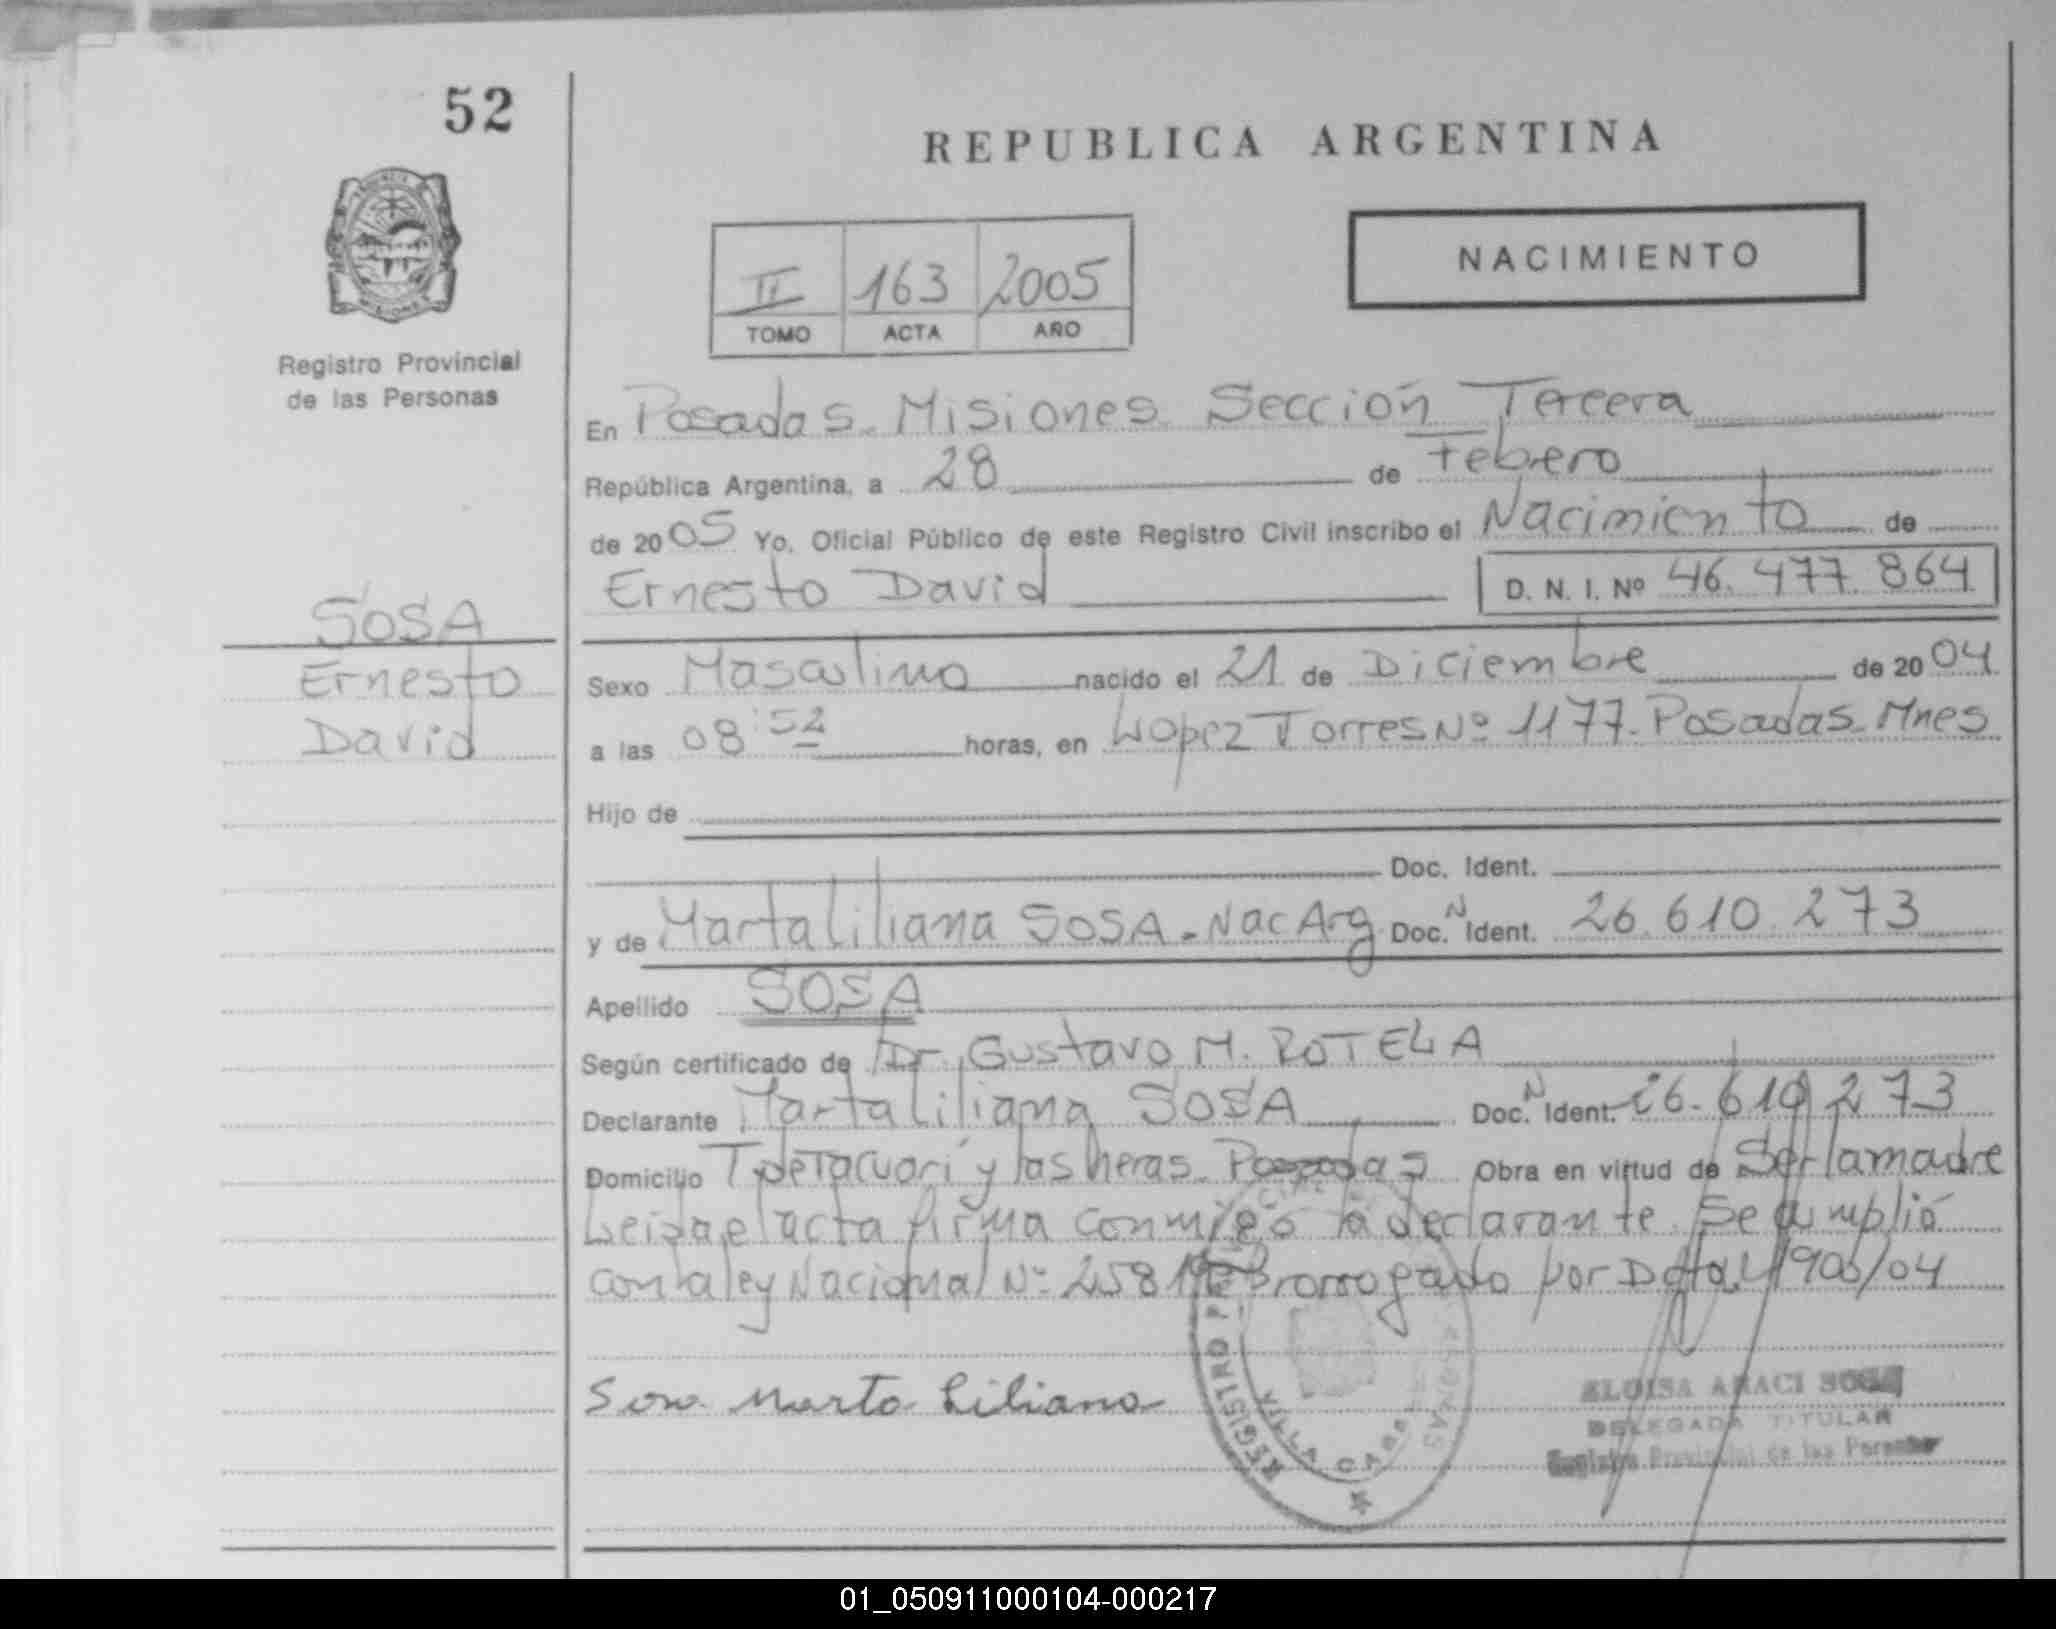 52
REPUBLICA ARGENTINA
NACIMIENTO
II 163 2005
TOMO ACTA AÑO
Registro Provincial
de las Personas
En Posadas Misiones Sección Tercera
República Argentina, a 28 de Febrero
de 2005 Yo, Oficial Público de este Registro Civil inscribo el Nacimiento de
Ernesto David D. N. I. Nº 46.477.864
SOSA
Ernesto
David
Sexo Masculino nacido el 21 de Diciembre de 2004
a las 08:52 horas, en Lopez Torres Nº 1177. Posadas Mnes
Hijo de
Doc. Ident.
y de Marta Liliana SOSA - Nac Arg Doc. N Ident. 26.610.273
Apellido SOSA
Según certificado de Dr. Gustavo M. ROTELA
Declarante Marta Liliana SOSA Doc. N Ident. 26.610.273
Domicilio Tdetacuari y las heras. Posadas Obra en virtud de Ser la madre
Leida el acta firma conmigo la declarante. Se cumplió
con la ley Nacional Nº Prorrogado por
Sosa Marta Liliana
REGISTRO
ELOISA ARACI SOSA
DELEGADA TITULAR
Registro Provincial de las Personas
01_050911000104-000217